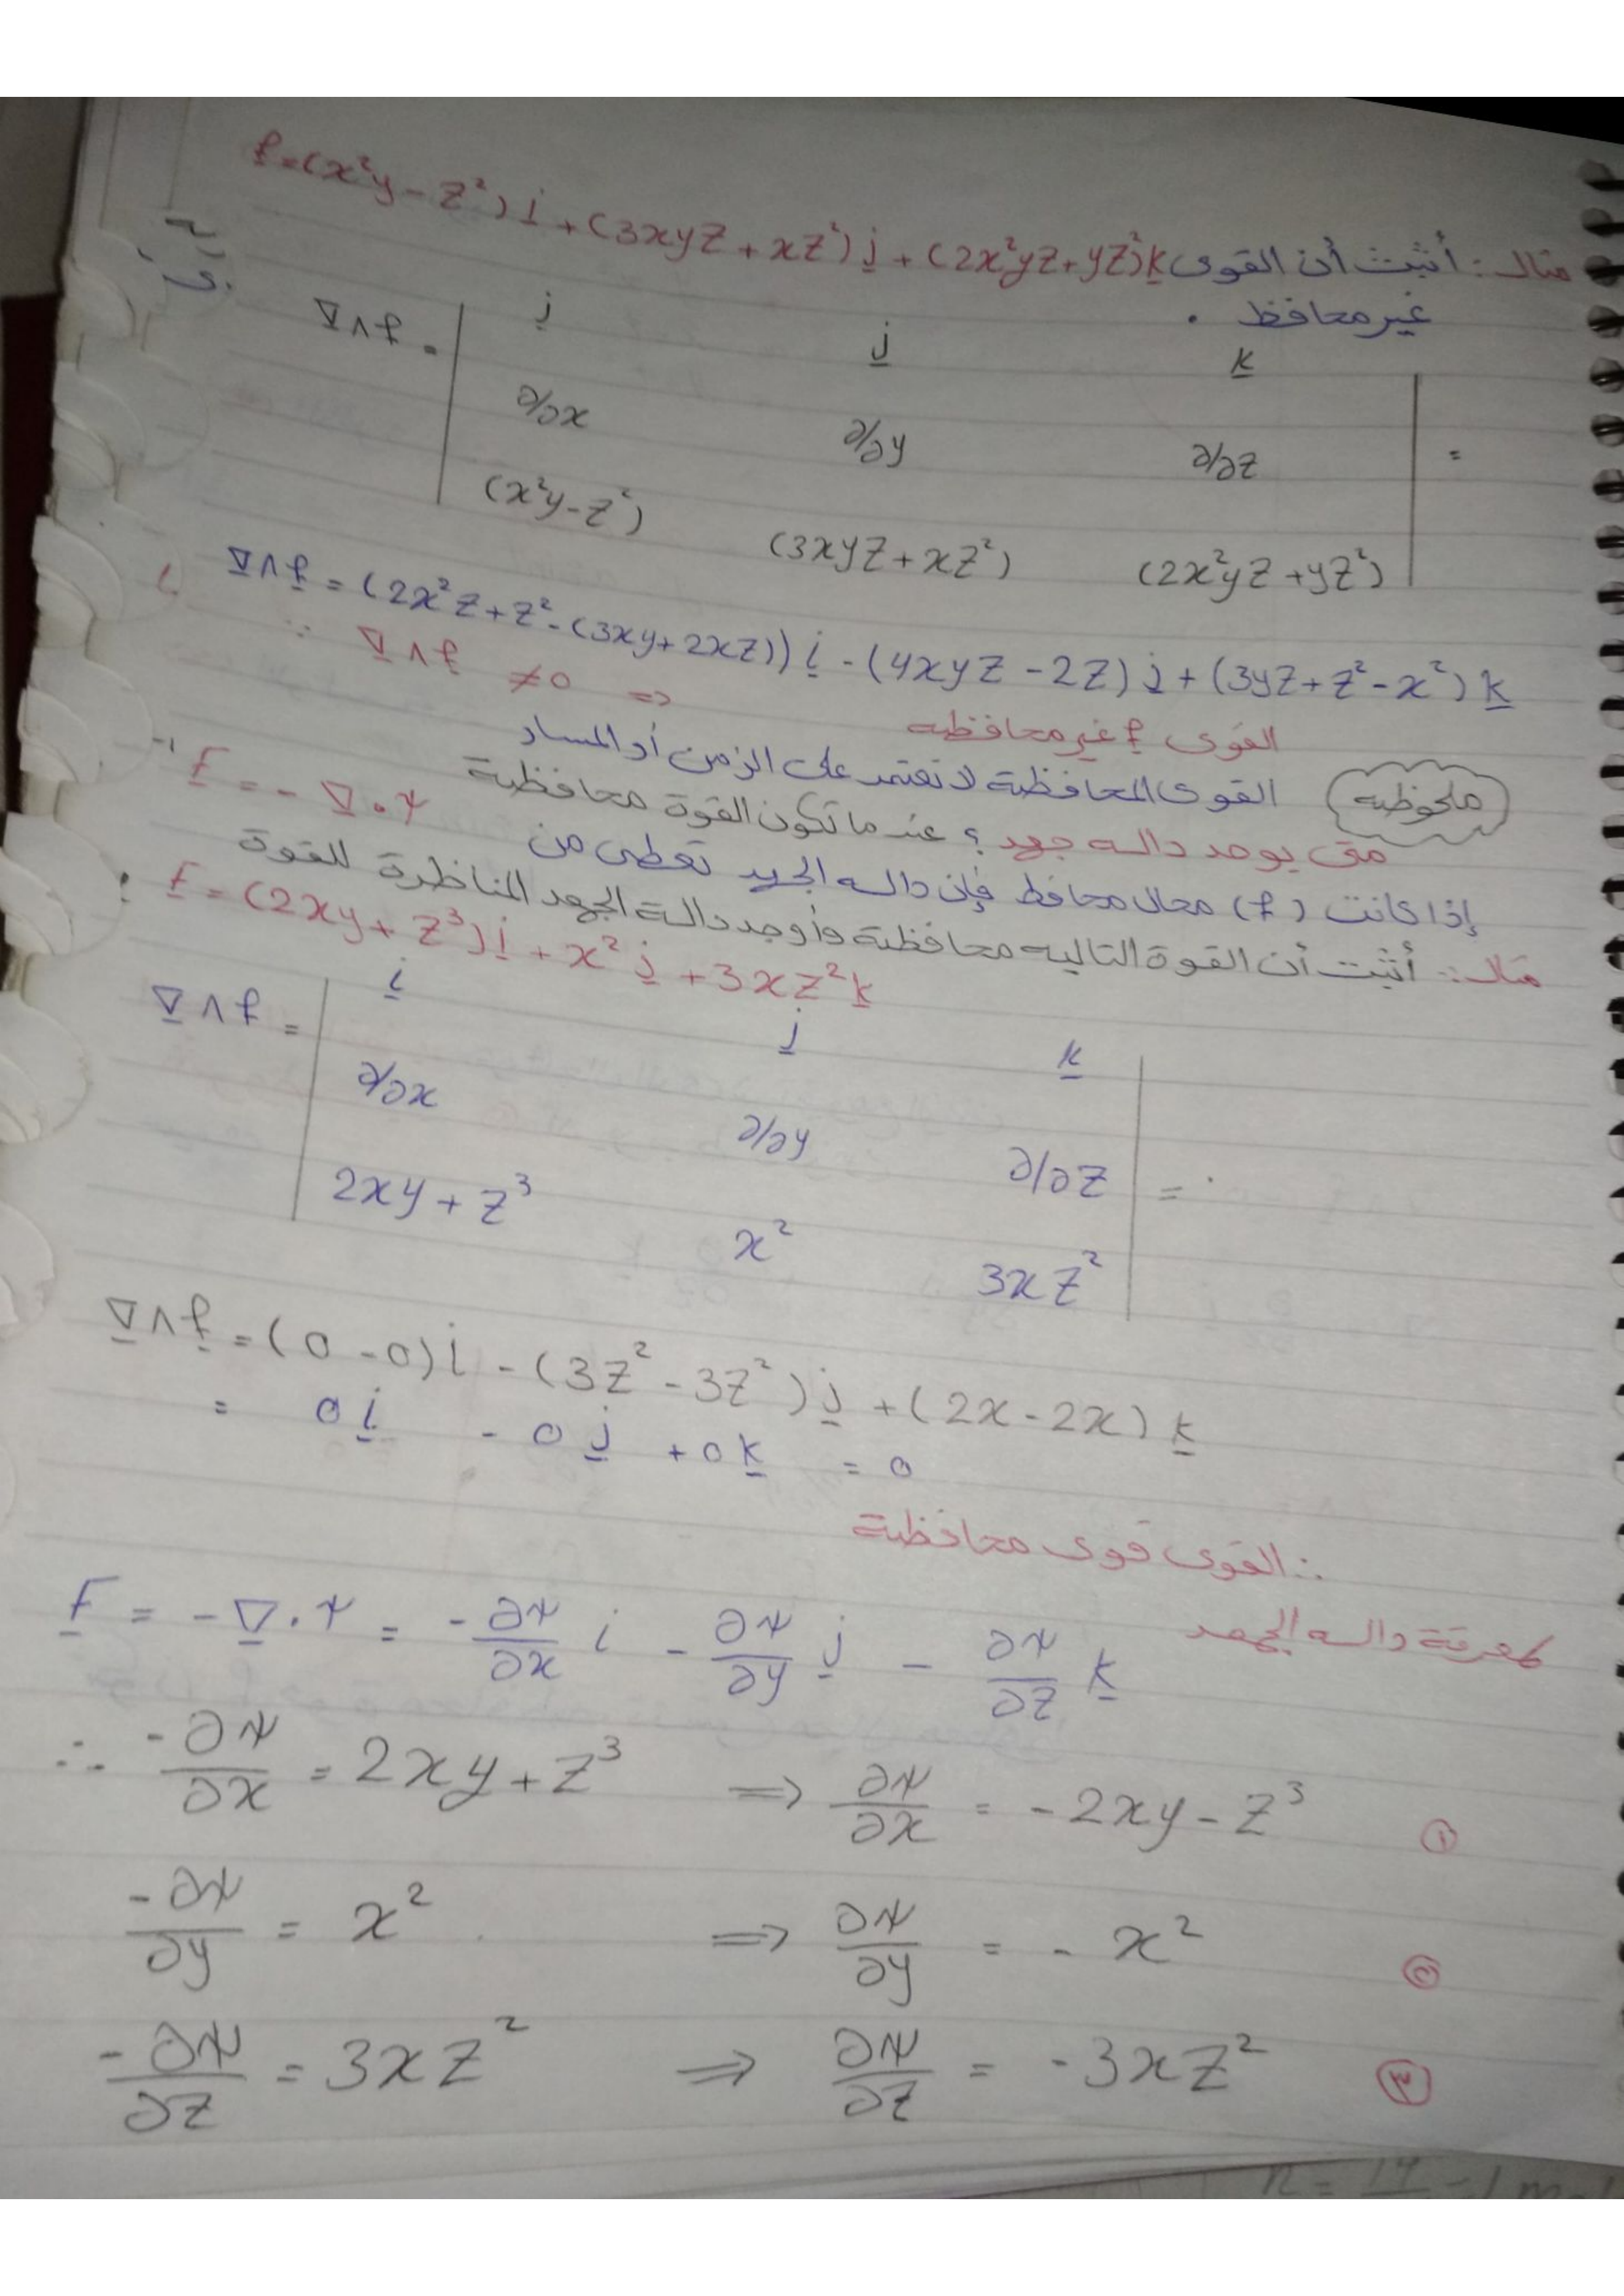 مثال: أثبت أن القوى f = (x²y - z²) i + (3xyz + xz²) j + (2x²yz + yz²) k
غير محافظ .
∇∧f = | i j k |
| ∂/∂x ∂/∂y ∂/∂z | =
| (x²y - z²) (3xyz + xz²) (2x²yz + yz²) |
∇∧f = (2x²z + z² - (3xy + 2xz)) i - (4xyz - 2z) j + (3yz + z² - x²) k
∵ ∇∧f ≠ 0 ⇒ القوى f غير محافظيه
ملحوظيه القوى المحافظية لا تعتمد على الزمن أو المسار
متى يوجد داله جهد ؟ عندما تكون القوة محافظية
إذا كانت (f) مجال محافظ فإن داله الجهد تعطى من F = - ∇ . ψ
مثال: أثبت أن القوة التاليه محافظية وأوجد دالة الجهد المناظرة للقوة :
F = (2xy + z³) i + x² j + 3xz² k
∇∧f = | i j k |
| ∂/∂x ∂/∂y ∂/∂z | =
| 2xy + z³ x² 3xz² |
∇∧f = (0 - 0) i - (3z² - 3z²) j + (2x - 2x) k
= 0 i - 0 j + 0 k = 0
∴ القوى قوى محافظية
لمعرفة داله الجهد
F = - ∇ . ψ = - ∂ψ/∂x i - ∂ψ/∂y j - ∂ψ/∂z k
∴ -∂ψ/∂x = 2xy + z³ ⇒ ∂ψ/∂x = - 2xy - z³ ①
-∂ψ/∂y = x² ⇒ ∂ψ/∂y = - x² ②
-∂ψ/∂z = 3xz² ⇒ ∂ψ/∂z = - 3xz² ③